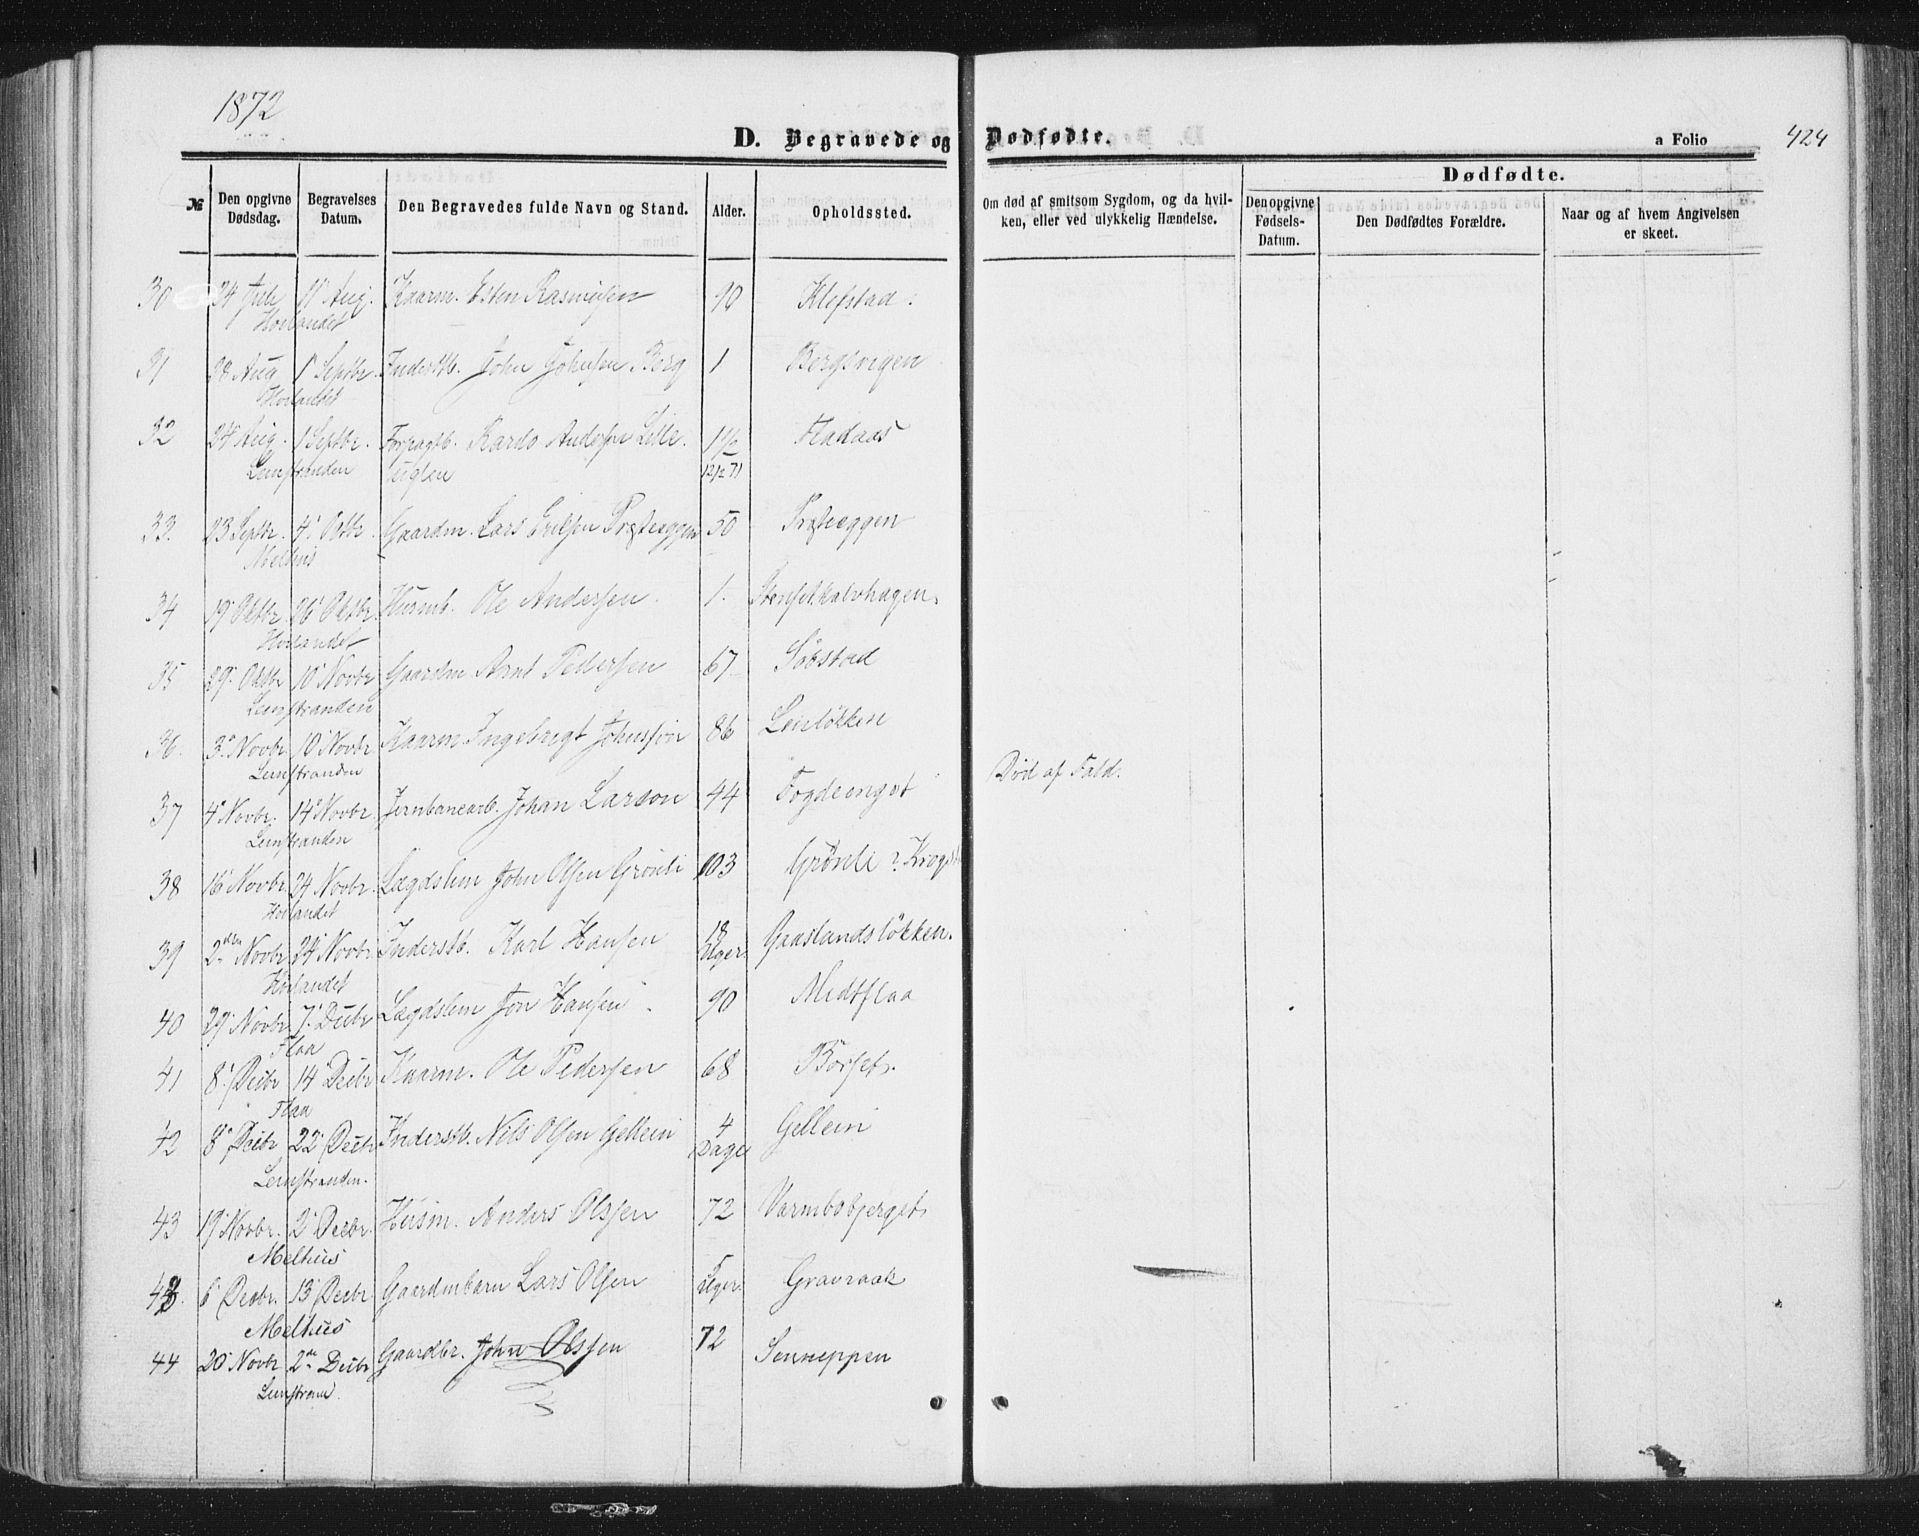 1872
D. Begravede og Dødfødte. a Folio 424
Dødfødte.
№ Den opgivne Dødsdag. Begravelses Datum. Den Begravedes fulde Navn og Stand. Alder. Opholdssted. Om død af smitsom Sygdom, og da hvilken, eller ved ulykkelig Hændelse. Den opgivne Fødsels-Datum. Den Dødfødtes Forældre. Naar og af hvem Angivelsen er skeet.
30 24 Juli 11 Aug. Kaarm. Esten Rasmusen 90 Klefstad
Hørlandet
31 28 Aug 1 Septbr. Inderstb. John Johnsen Berg 1 Bergsvigen
Hørlandet
32 24 Aug. 1 Septbr. Forpagtb. Anderssen Lille 1 1/2 Fladaas
Leinstranden uglen 12/12 71
33. 23 Septbr. 4 Octbr. Gaardm. Lars Eriksen Præsteeggen 50 Præsteeggen
Melhus
34 19 Oktbr 26 Oktbr Husmb. Ole Andersen 1.
Hørlandet
35 29. Oktbr 10 Novbr Gaardm Arnt Pedersen 67 Søbstad
Leinstranden
36. 3 Novbr 10 Novbr Kaarm. Ingebrigt Johnssøn 86 Leerløkken
Leinstranden
37 4 Novbr. 14 Novbr. Jernbanearb. Johan Larson 44 Fogdeenget Død af Fald.
Leinstranden
38 16 Novbr. 24 Novbr. Lægdslem John Olsen Grønli 103 Grønli ?
Hørlandet
39 2den Novbr 24 Novbr. Inderstb. Karl Hansen 18 Uger. Gaaslandsløkken.
Hørlandet
40 29 Novbr. 7 Decbr Lægdslem Jon Hansen 90 Midtflaa
Flaa
41 8 Decbr 14 Decbr Kaarm. Ole Pedersen 68 Borset.
Flaa
42 8 Decbr 22 Decbr Inderstb. Nils Olsen Gellein 4 Dage Gellein
Leinstranden.
43 19 Novbr. 2 Decbr. Husm. Anders Olssen 72 Varmbobjerget
Melhus
43. 6 Decbr. 13 Decbr. Gaardmbarn Lars Olsen Uger. Gravraak
Melhus
44 20 Novbr 2den Decbr Gaardbr. John Olssen 72 Senneppen
Leinstrand.